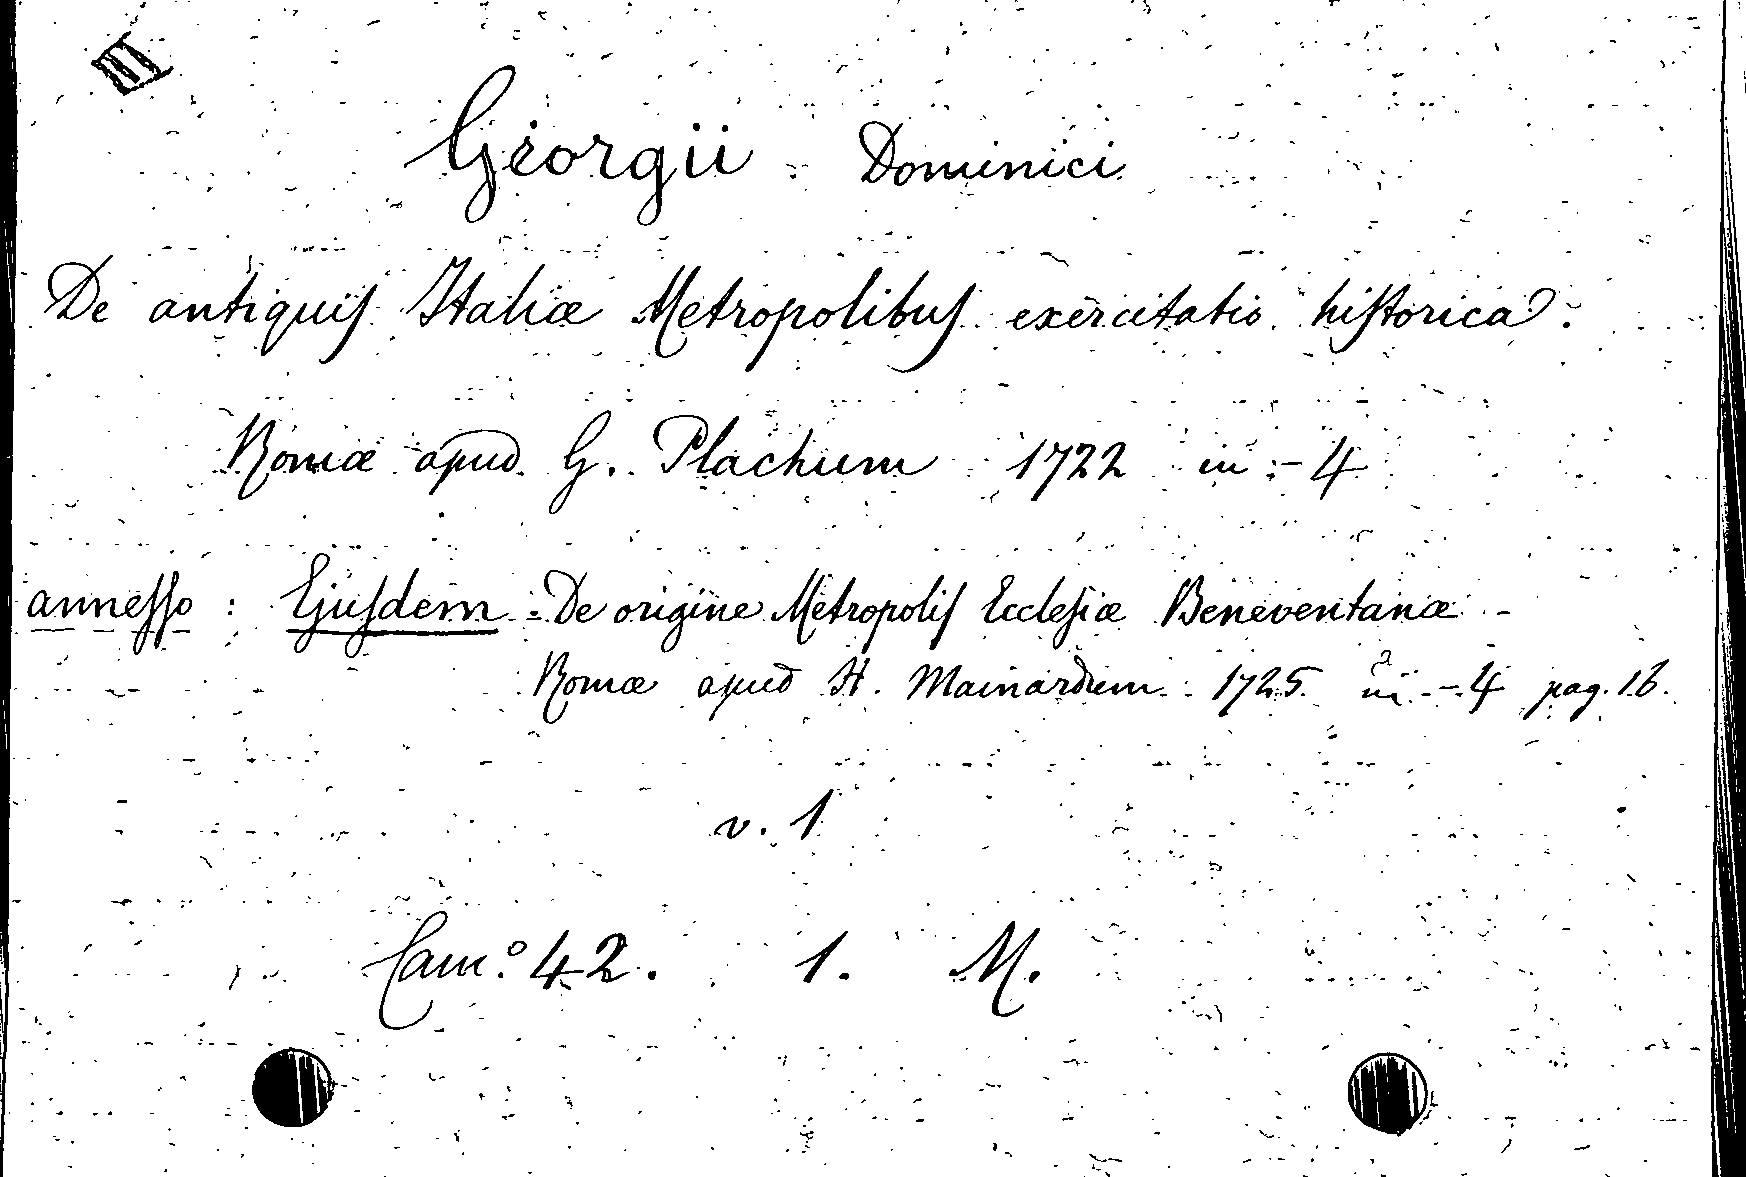 III
Georgii Dominici
De antiquiſ Italiæ Metropolibuſ exercitatio hiſtorica.
Romæ apud G. Plachum 1722 in - 4
anneſſo : Ejuſdem - De origine Metropoliſ Eccleſiæ Beneventanæ
Romæ apud H. Mainardum 1725 in - 4 pag. 16.
v. 1
Cam.º 42. 1. M.